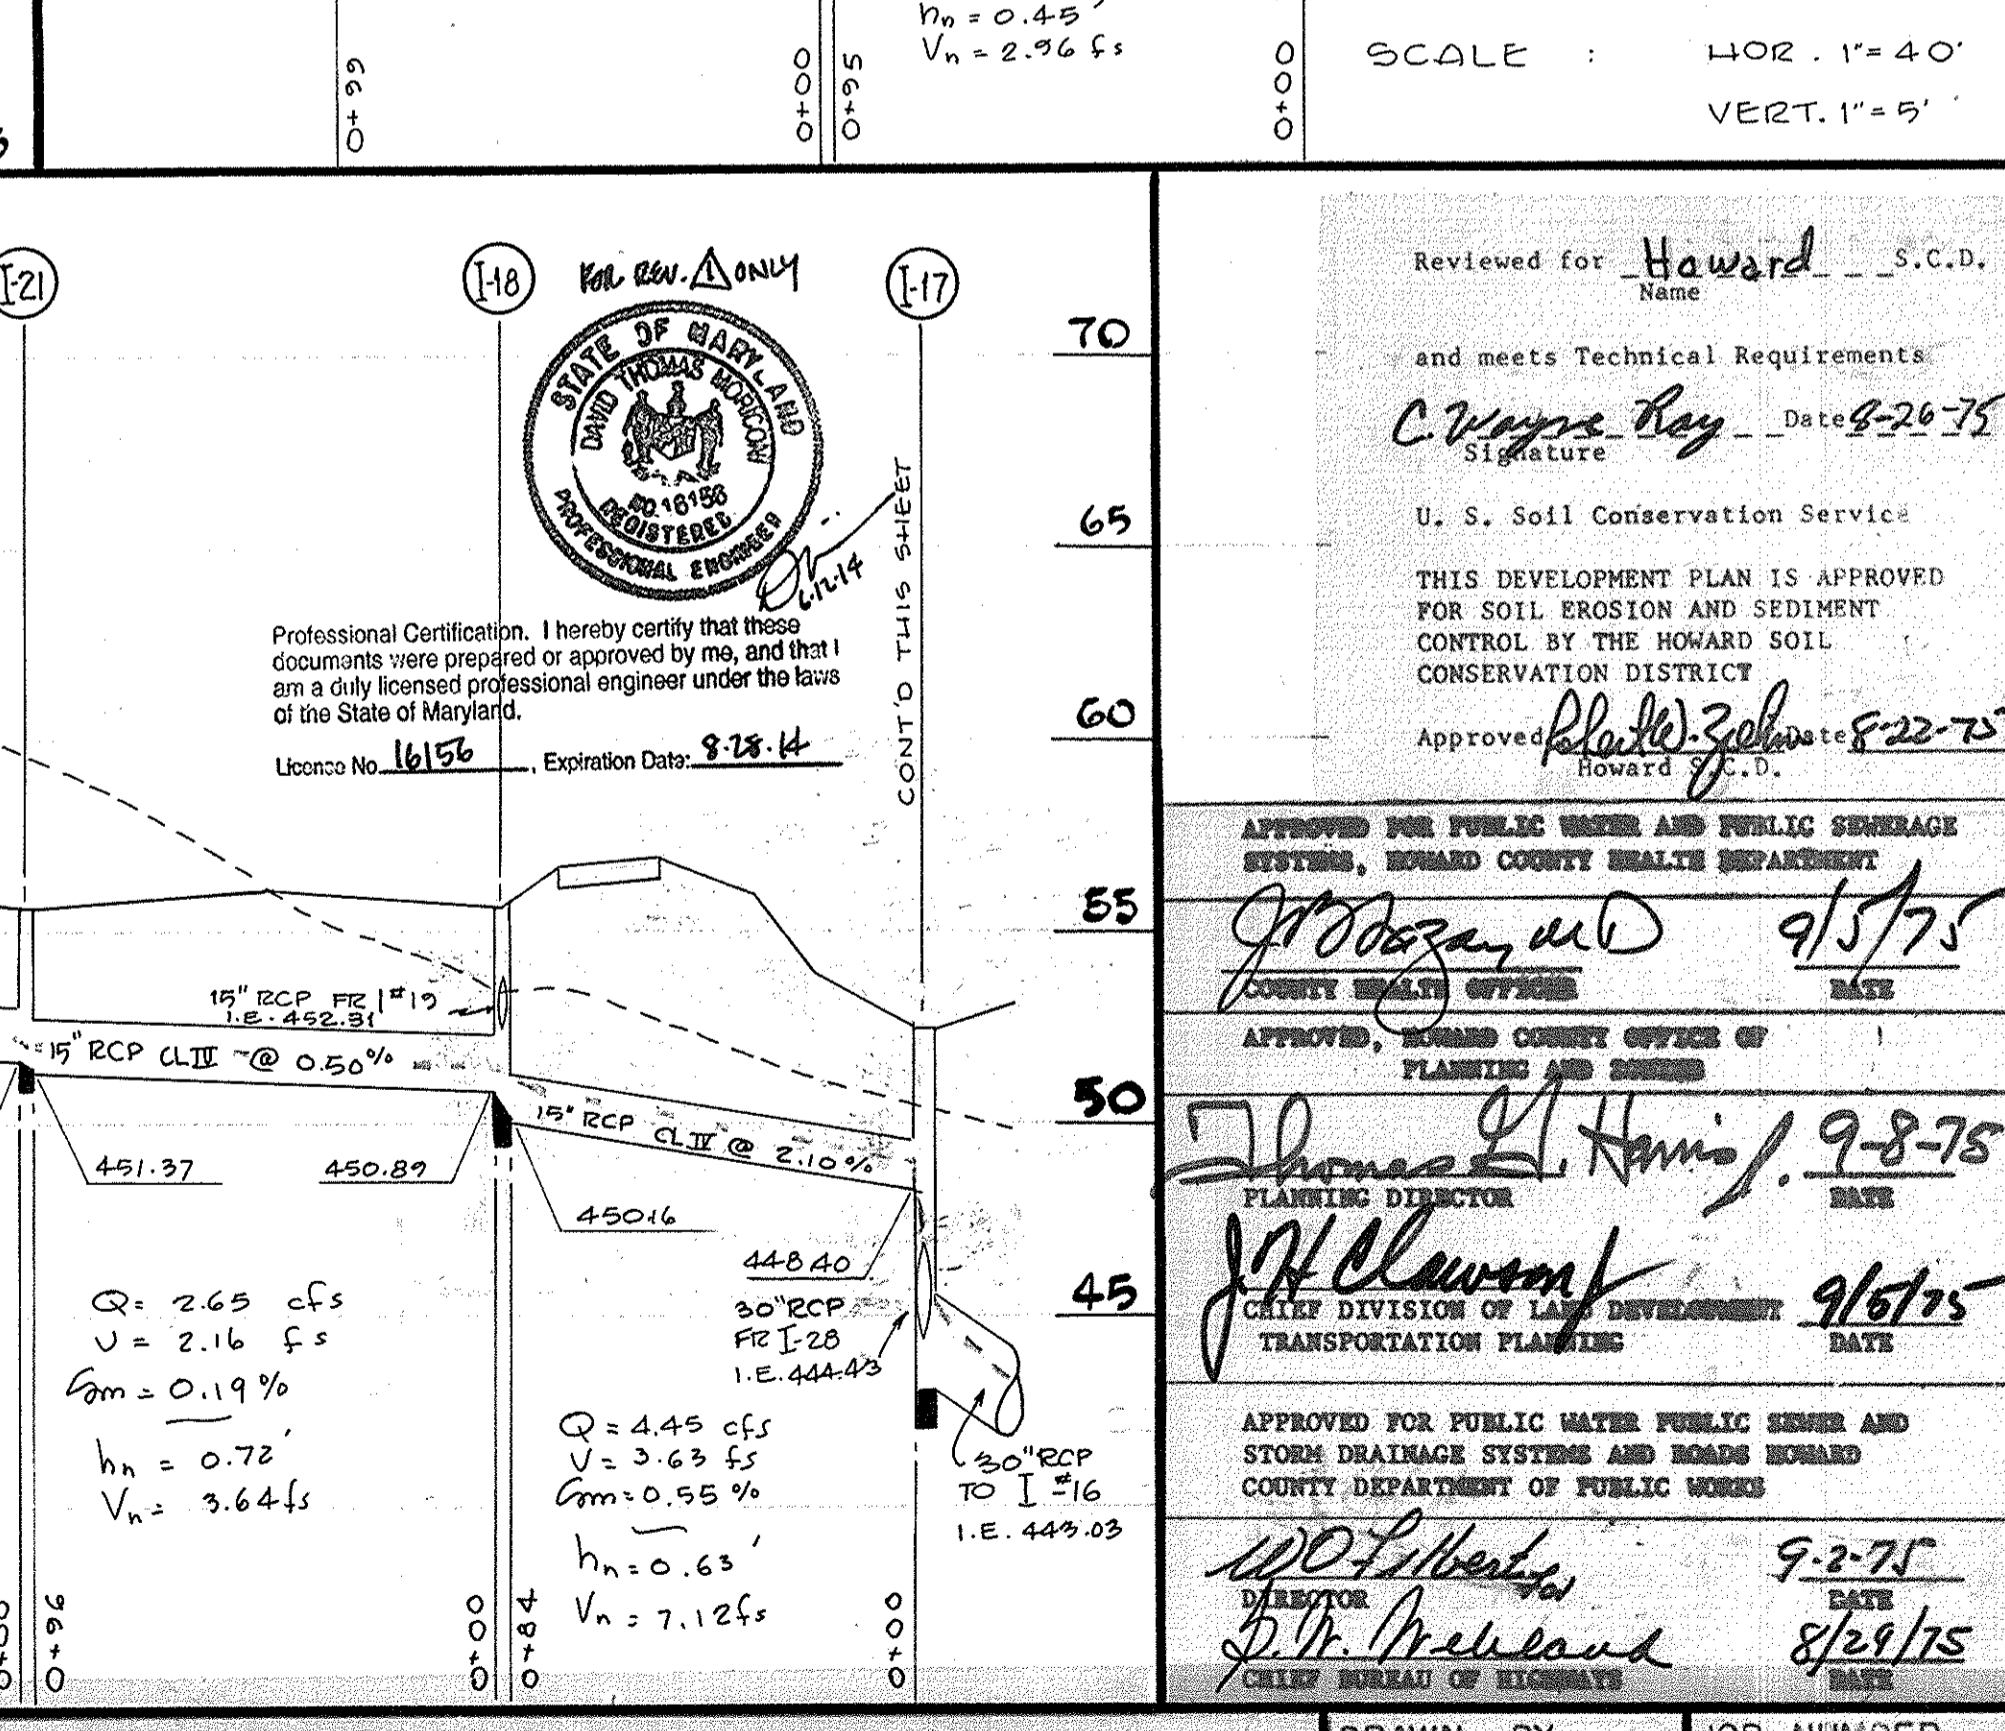 hn = 0.45'
Vn = 2.96 fs
0+99
0+00
0+95
0+00
SCALE : HOR. 1"= 40'
VERT. 1"= 5'
I-21
I-18
FOR REV. 1 ONLY
I-17
STATE OF MARYLAND
DAVID THOMAS MORICONI
NO. 16156
REGISTERED
PROFESSIONAL ENGINEER
6.12.14
Professional Certification. I hereby certify that these
documents were prepared or approved by me, and that I
am a duly licensed professional engineer under the laws
of the State of Maryland.
License No. 16156, Expiration Date: 8.28.14
CONT'D THIS SHEET
70
65
60
55
50
45
15" RCP FR I#19
I.E. 452.31
15" RCP CL IV @ 0.50%
15" RCP CL IV @ 2.10%
451.37
450.89
450.16
448.40
30"RCP
FR I-28
I.E. 444.43
Q= 2.65 cfs
V= 2.16 fs
Sm= 0.19%
hn = 0.72'
Vn= 3.64fs
Q= 4.45 cfs
V= 3.63 fs
Sm=0.55%
hn=0.63'
Vn= 7.12fs
30"RCP
TO I #16
I.E. 443.03
0+96
0+00
0+84
0+00
Reviewed for Howard S.C.D.
Name
and meets Technical Requirements
C. Wayne Ray Date 8-26-75
Signature
U. S. Soil Conservation Service
THIS DEVELOPMENT PLAN IS APPROVED
FOR SOIL EROSION AND SEDIMENT
CONTROL BY THE HOWARD SOIL
CONSERVATION DISTRICT
Approved Date 8-22-75
Howard S.C.D.
APPROVED FOR PUBLIC WATER AND PUBLIC SEWERAGE
SYSTEMS, HOWARD COUNTY HEALTH DEPARTMENT
9/5/75
COUNTY HEALTH OFFICER DATE
APPROVED, HOWARD COUNTY OFFICE OF
PLANNING AND ZONING
Thomas G. Harris Jr. 9-8-75
PLANNING DIRECTOR DATE
J. H. Clawson 9/5/75
CHIEF DIVISION OF LAND DEVELOPMENT
TRANSPORTATION PLANNING DATE
APPROVED FOR PUBLIC WATER PUBLIC SEWER AND
STORM DRAINAGE SYSTEMS AND ROADS HOWARD
COUNTY DEPARTMENT OF PUBLIC WORKS
9-2-75
DIRECTOR DATE
8/29/75
CHIEF BUREAU OF HIGHWAYS DATE